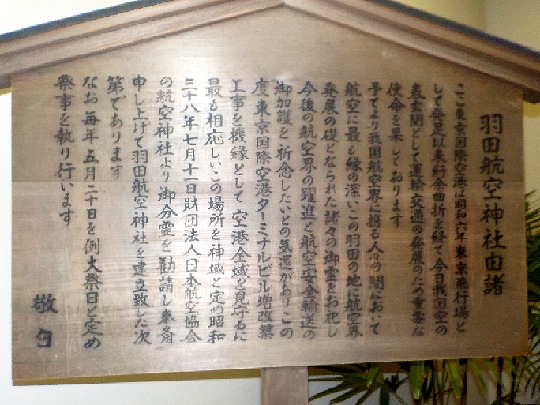 羽田航空神社由緒
ここ東京国際空港は昭和六年東京飛行場と
して発足以来紆余曲折を経て今日我国空の
表玄関として運輸交通の発展のため重要な
使命を果しております
予てより我国航空界に携る人々の間において
航空に最も縁の深いこの羽田の地に航空界
発展の礎となられた諸々の御霊をお祀し
今後の航空界の躍進と航空安全輸送の
御加護を祈念したいとの気運があり この
度東京国際空港ターミナルビル増改築
工事を機縁として 空港全域を見守るに
最も相応しいこの場所を神域と定め昭和
三十八年七月十一日財団法人日本航空協会
の航空神社より御分霊を勧請し奉斎
申し上げて羽田航空神社を建立致した次
第であります
なお毎年五月二十日を例大祭日と定め
祭事を執り行います
敬白